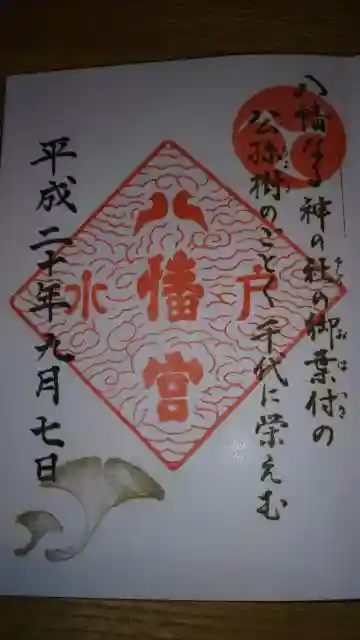 八幡なる神の社の御葉付の
やしろ
おはつき
公孫樹のごとく千代に栄えむ
八幡宮
水戸
平成二十年九月七日